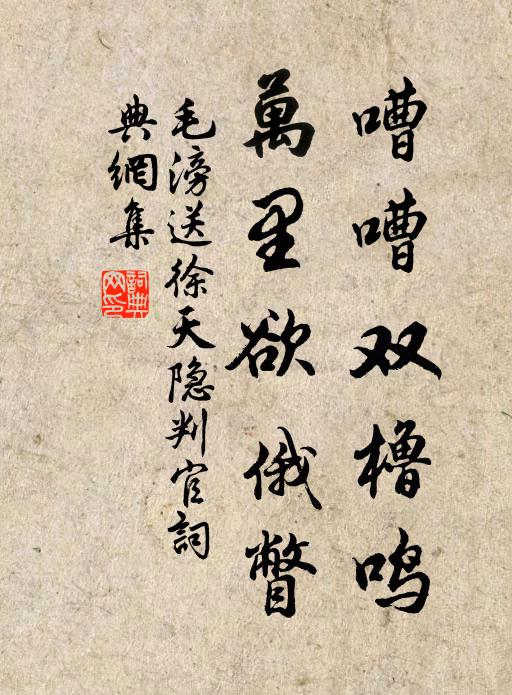 嘈嘈双橹鸣
萬里欲俄瞥
毛滂送徐天隐判官詞
典網集
詞典网印